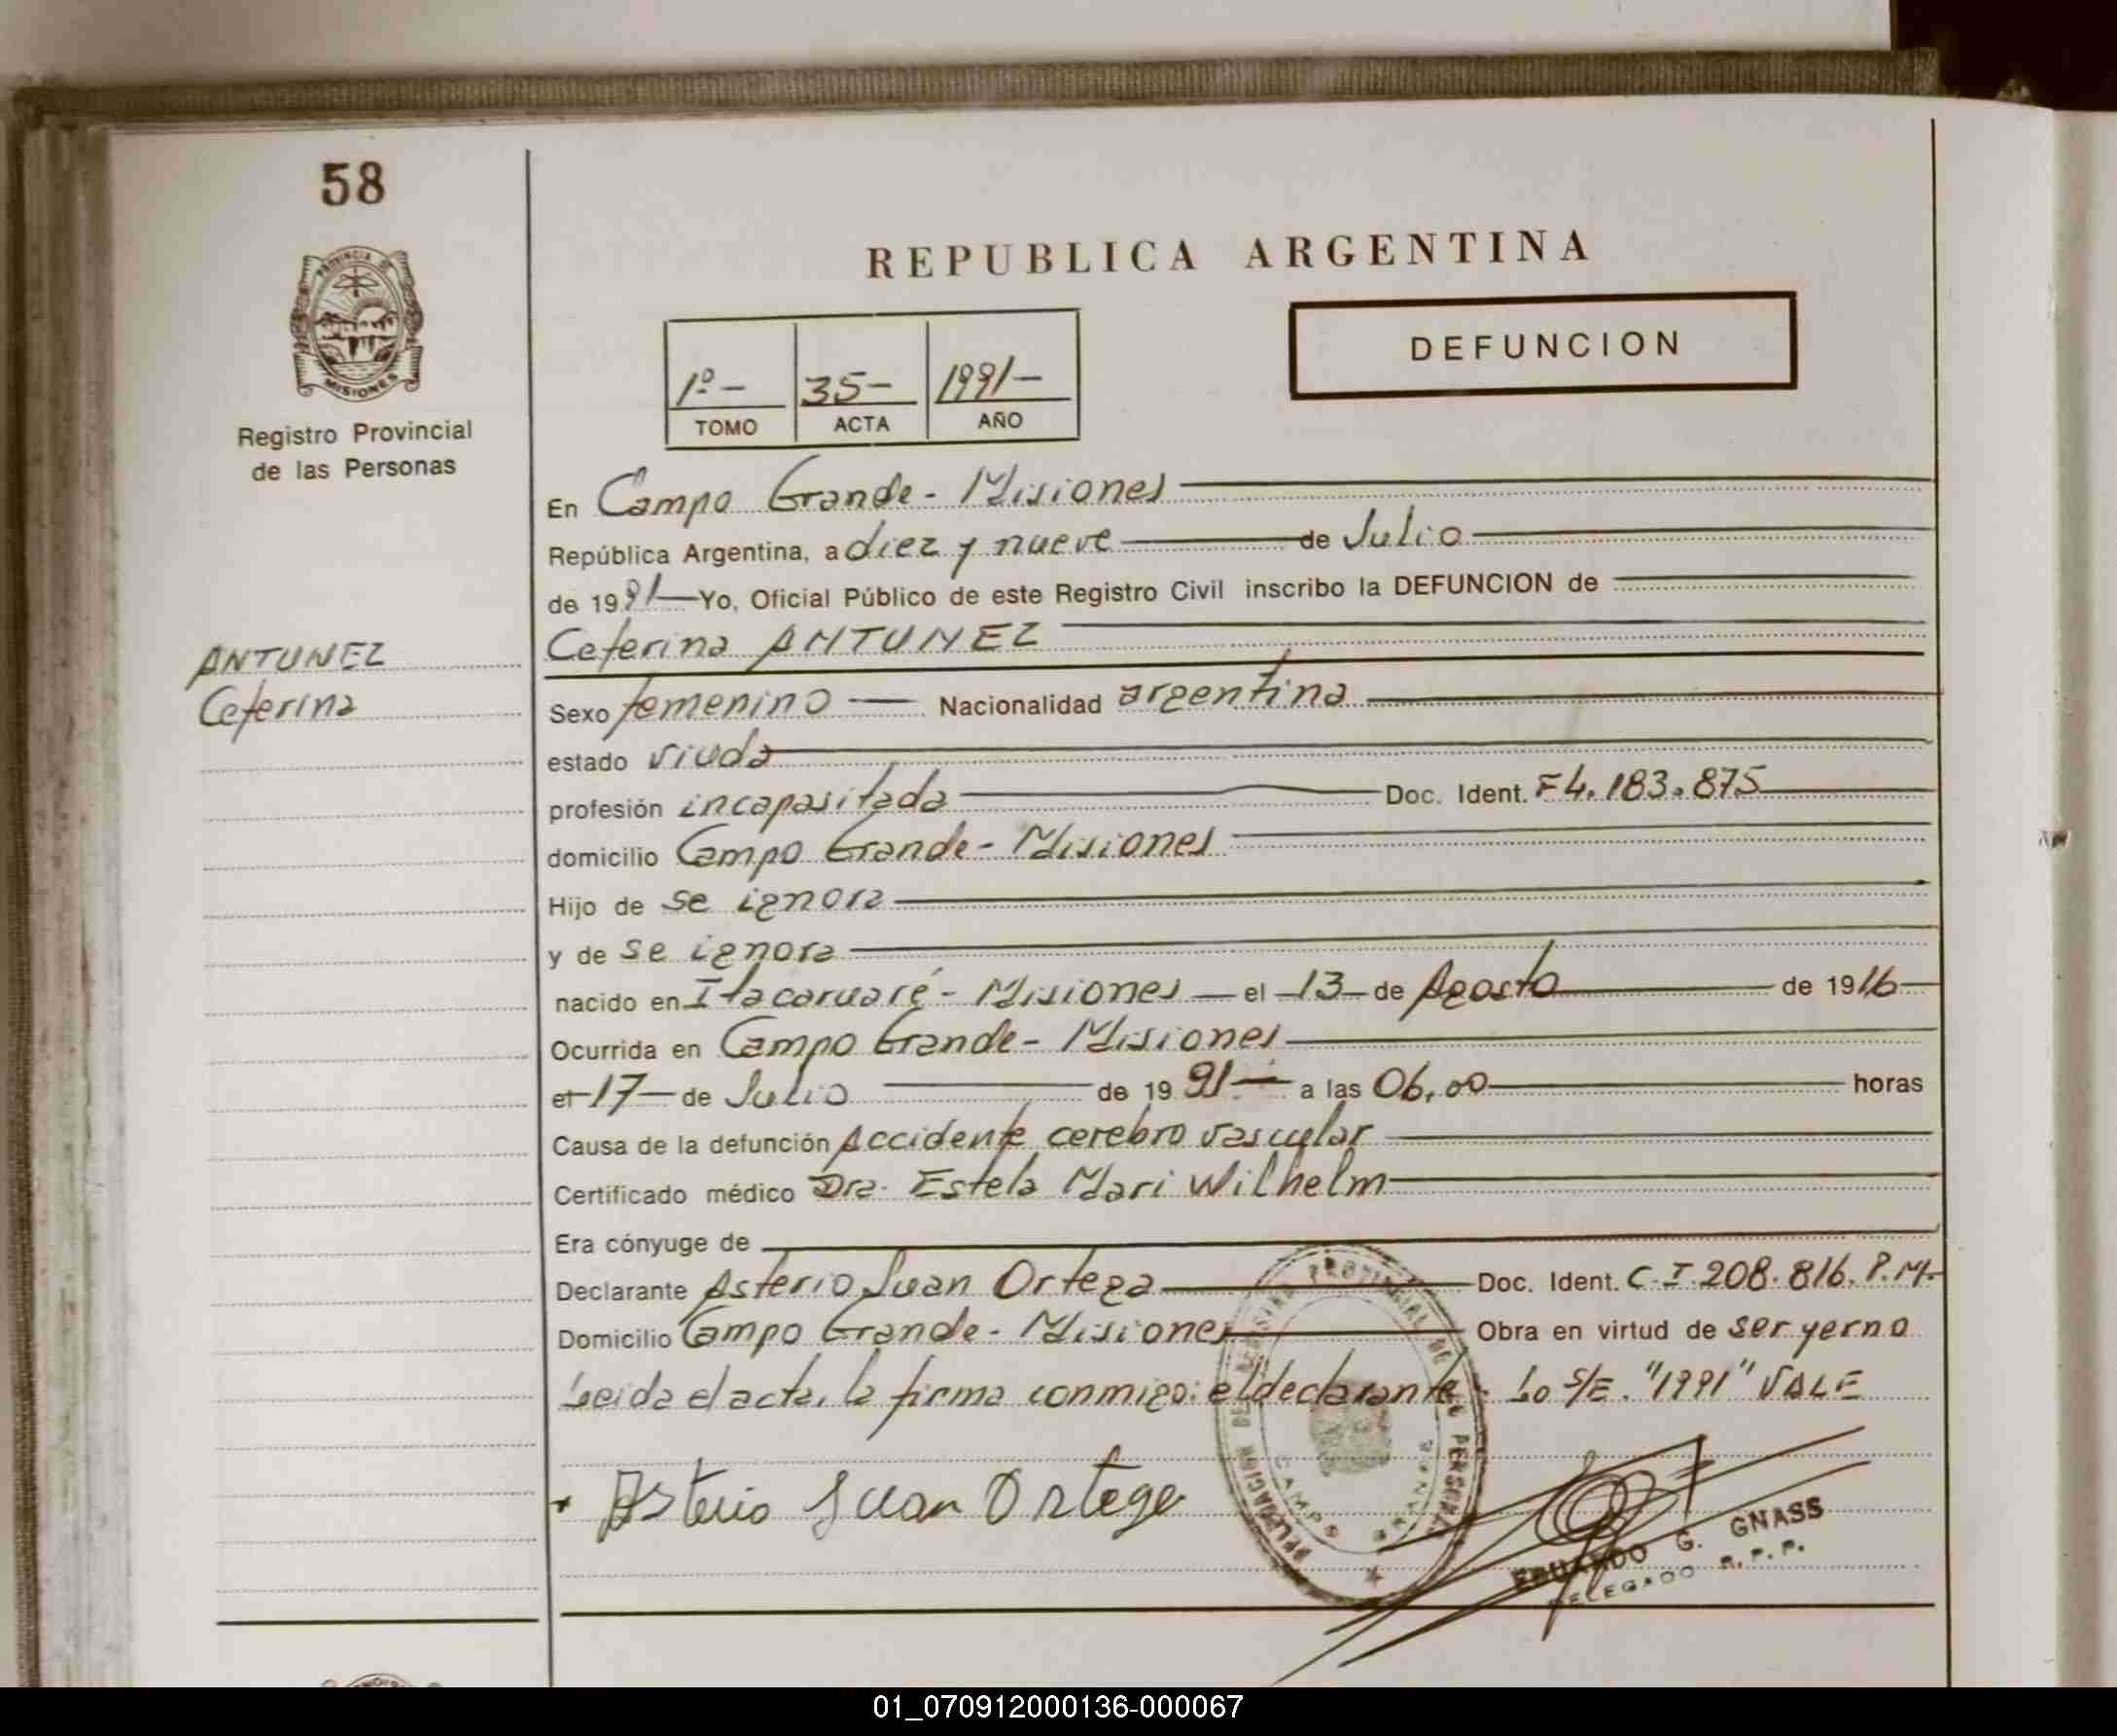 58
PROVINCIA DE
MISIONES
Registro Provincial
de las Personas
REPUBLICA ARGENTINA
DEFUNCION
1º - 35 - 1991 -
TOMO ACTA AÑO
En Campo Grande - Misiones
República Argentina, a diez y nueve de Julio
de 1991 Yo, Oficial Público de este Registro Civil inscribo la DEFUNCION de
ANTUNEZ
Ceferina
Ceferina ANTUNEZ
Sexo femenino Nacionalidad argentina
estado viuda
profesión incapasitada Doc. Ident. F4.183.875
domicilio Campo Grande - Misiones
Hijo de se ignora
y de se ignora
nacido en Itacaruaré - Misiones el 13 de Agosto de 1916
Ocurrida en Campo Grande - Misiones
el 17 de Julio de 1991 a las 06,00 horas
Causa de la defunción Accidente cerebro vascular
Certificado médico Dra. Estela Mari Wilhelm
Era cónyuge de
Declarante Asterio Juan Ortega Doc. Ident. C.I. 208.816. P.M.
Domicilio Campo Grande - Misiones Obra en virtud de ser yerno
Leida el acta, la firma conmigo: el declarante - Lo S/E. "1991" VALE
Asterio Juan Ortega
DELEGACION DEL REGISTRO PROVINCIAL DE LAS PERSONAS
CAMPO GRANDE
EDUARDO G. GNASS
DELEGADO R.P.P.
01_070912000136-000067